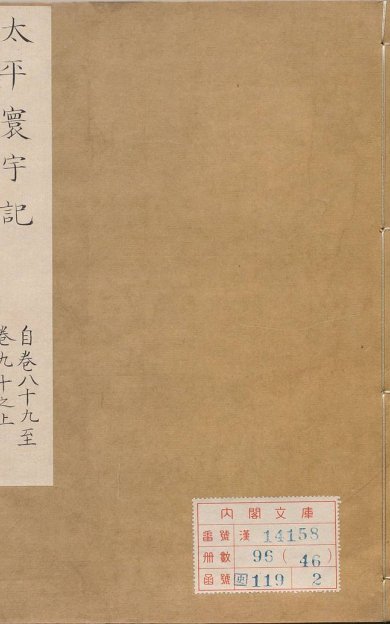 太平寰宇記
自卷八十九至
卷九十之上
內閣文庫
番號 漢 14158
册數 96(46)
函號 史 119 2